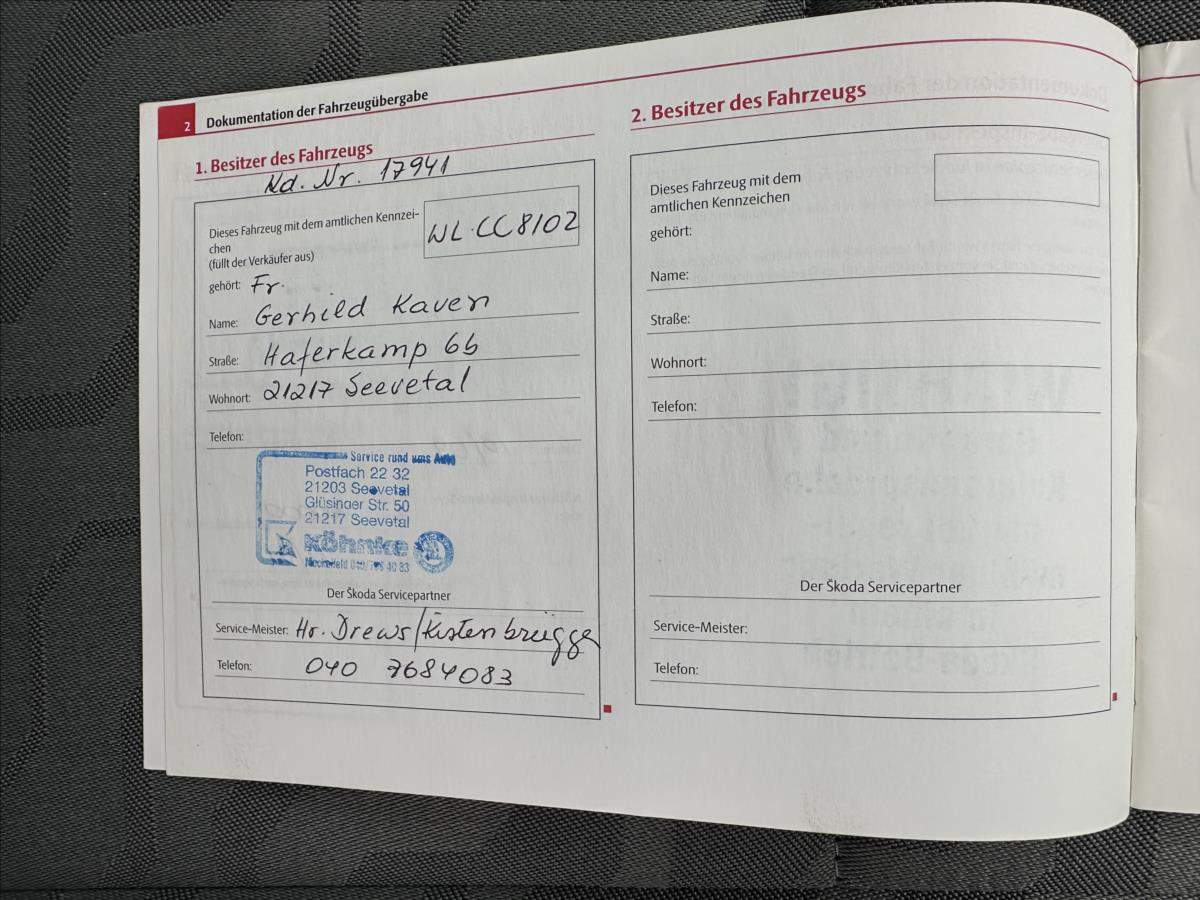 2 Dokumentation der Fahrzeugübergabe
1. Besitzer des Fahrzeugs
Kd. Nr. 17941
Dieses Fahrzeug mit dem amtlichen Kennzei-
chen
(füllt der Verkäufer aus)
WL·CC8102
gehört: Fr.
Name: Gerhild Kaven
Straße: Haferkamp 6b
Wohnort: 21217 Seevetal
Telefon:
Service rund ums Auto
Postfach 22 32
21203 Seevetal
Glüsinger Str. 50
21217 Seevetal
köhnke
Der Škoda Servicepartner
Service-Meister: Hr. Drews/Kistenbrügge
Telefon: 040 7684083
2. Besitzer des Fahrzeugs
Dieses Fahrzeug mit dem
amtlichen Kennzeichen
gehört:
Name:
Straße:
Wohnort:
Telefon:
Der Škoda Servicepartner
Service-Meister:
Telefon: